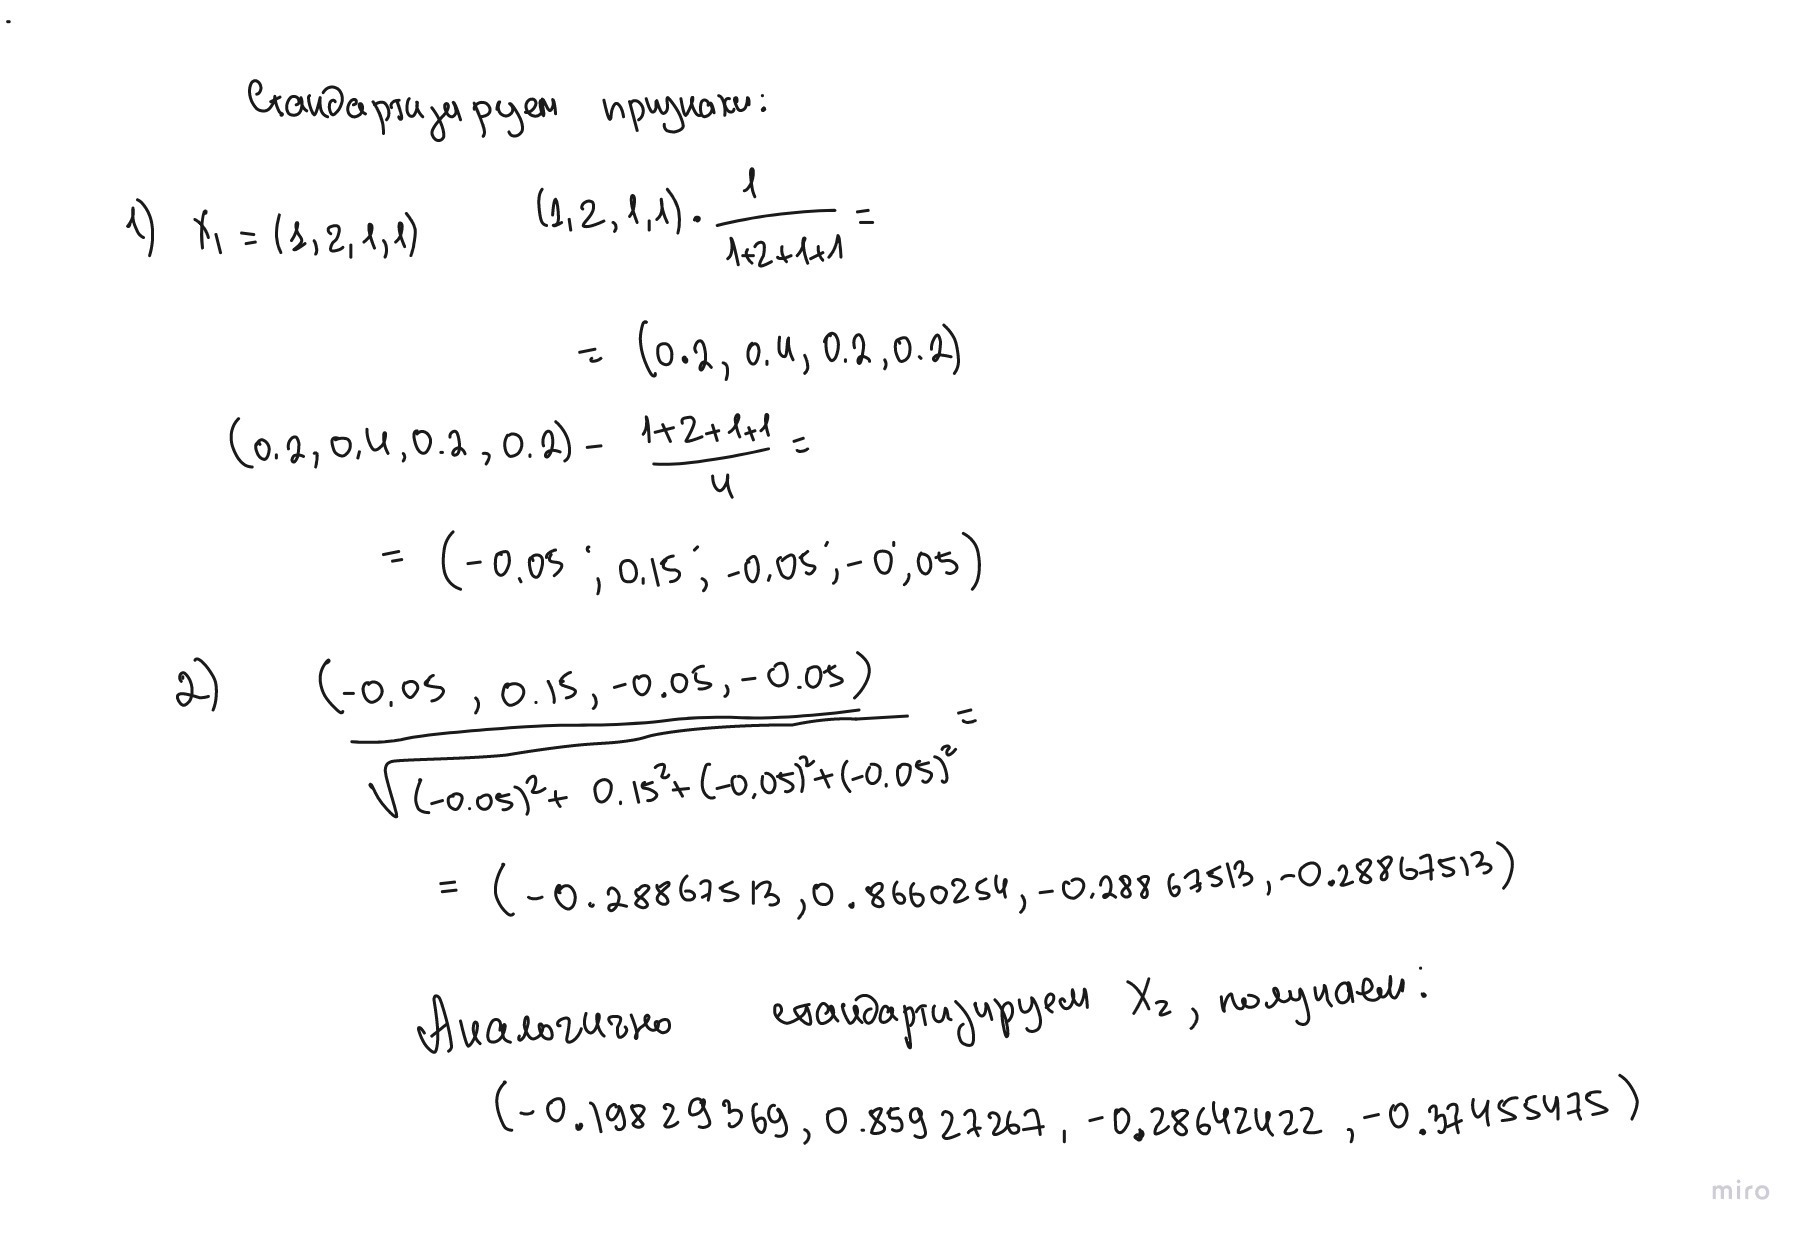 Стандартизируем признаки:
1) X₁ = (1, 2, 1, 1) (1, 2, 1, 1) · 1/(1+2+1+1) =
= (0.2, 0.4, 0.2, 0.2)
(0.2, 0.4, 0.2, 0.2) - (1+2+1+1)/4 =
= (-0.05 ; 0.15 ; -0.05 ; -0,05)
2) (-0.05 , 0.15, -0.05, -0.05) / √((-0.05)² + 0.15² + (-0.05)² + (-0.05)²) =
= (-0.28867513, 0.8660254, -0.28867513, -0.28867513)
Аналогично стандартизируем X₂, получаем:
(-0.19829369, 0.85927267, -0.28642422, -0.37455475)
miro